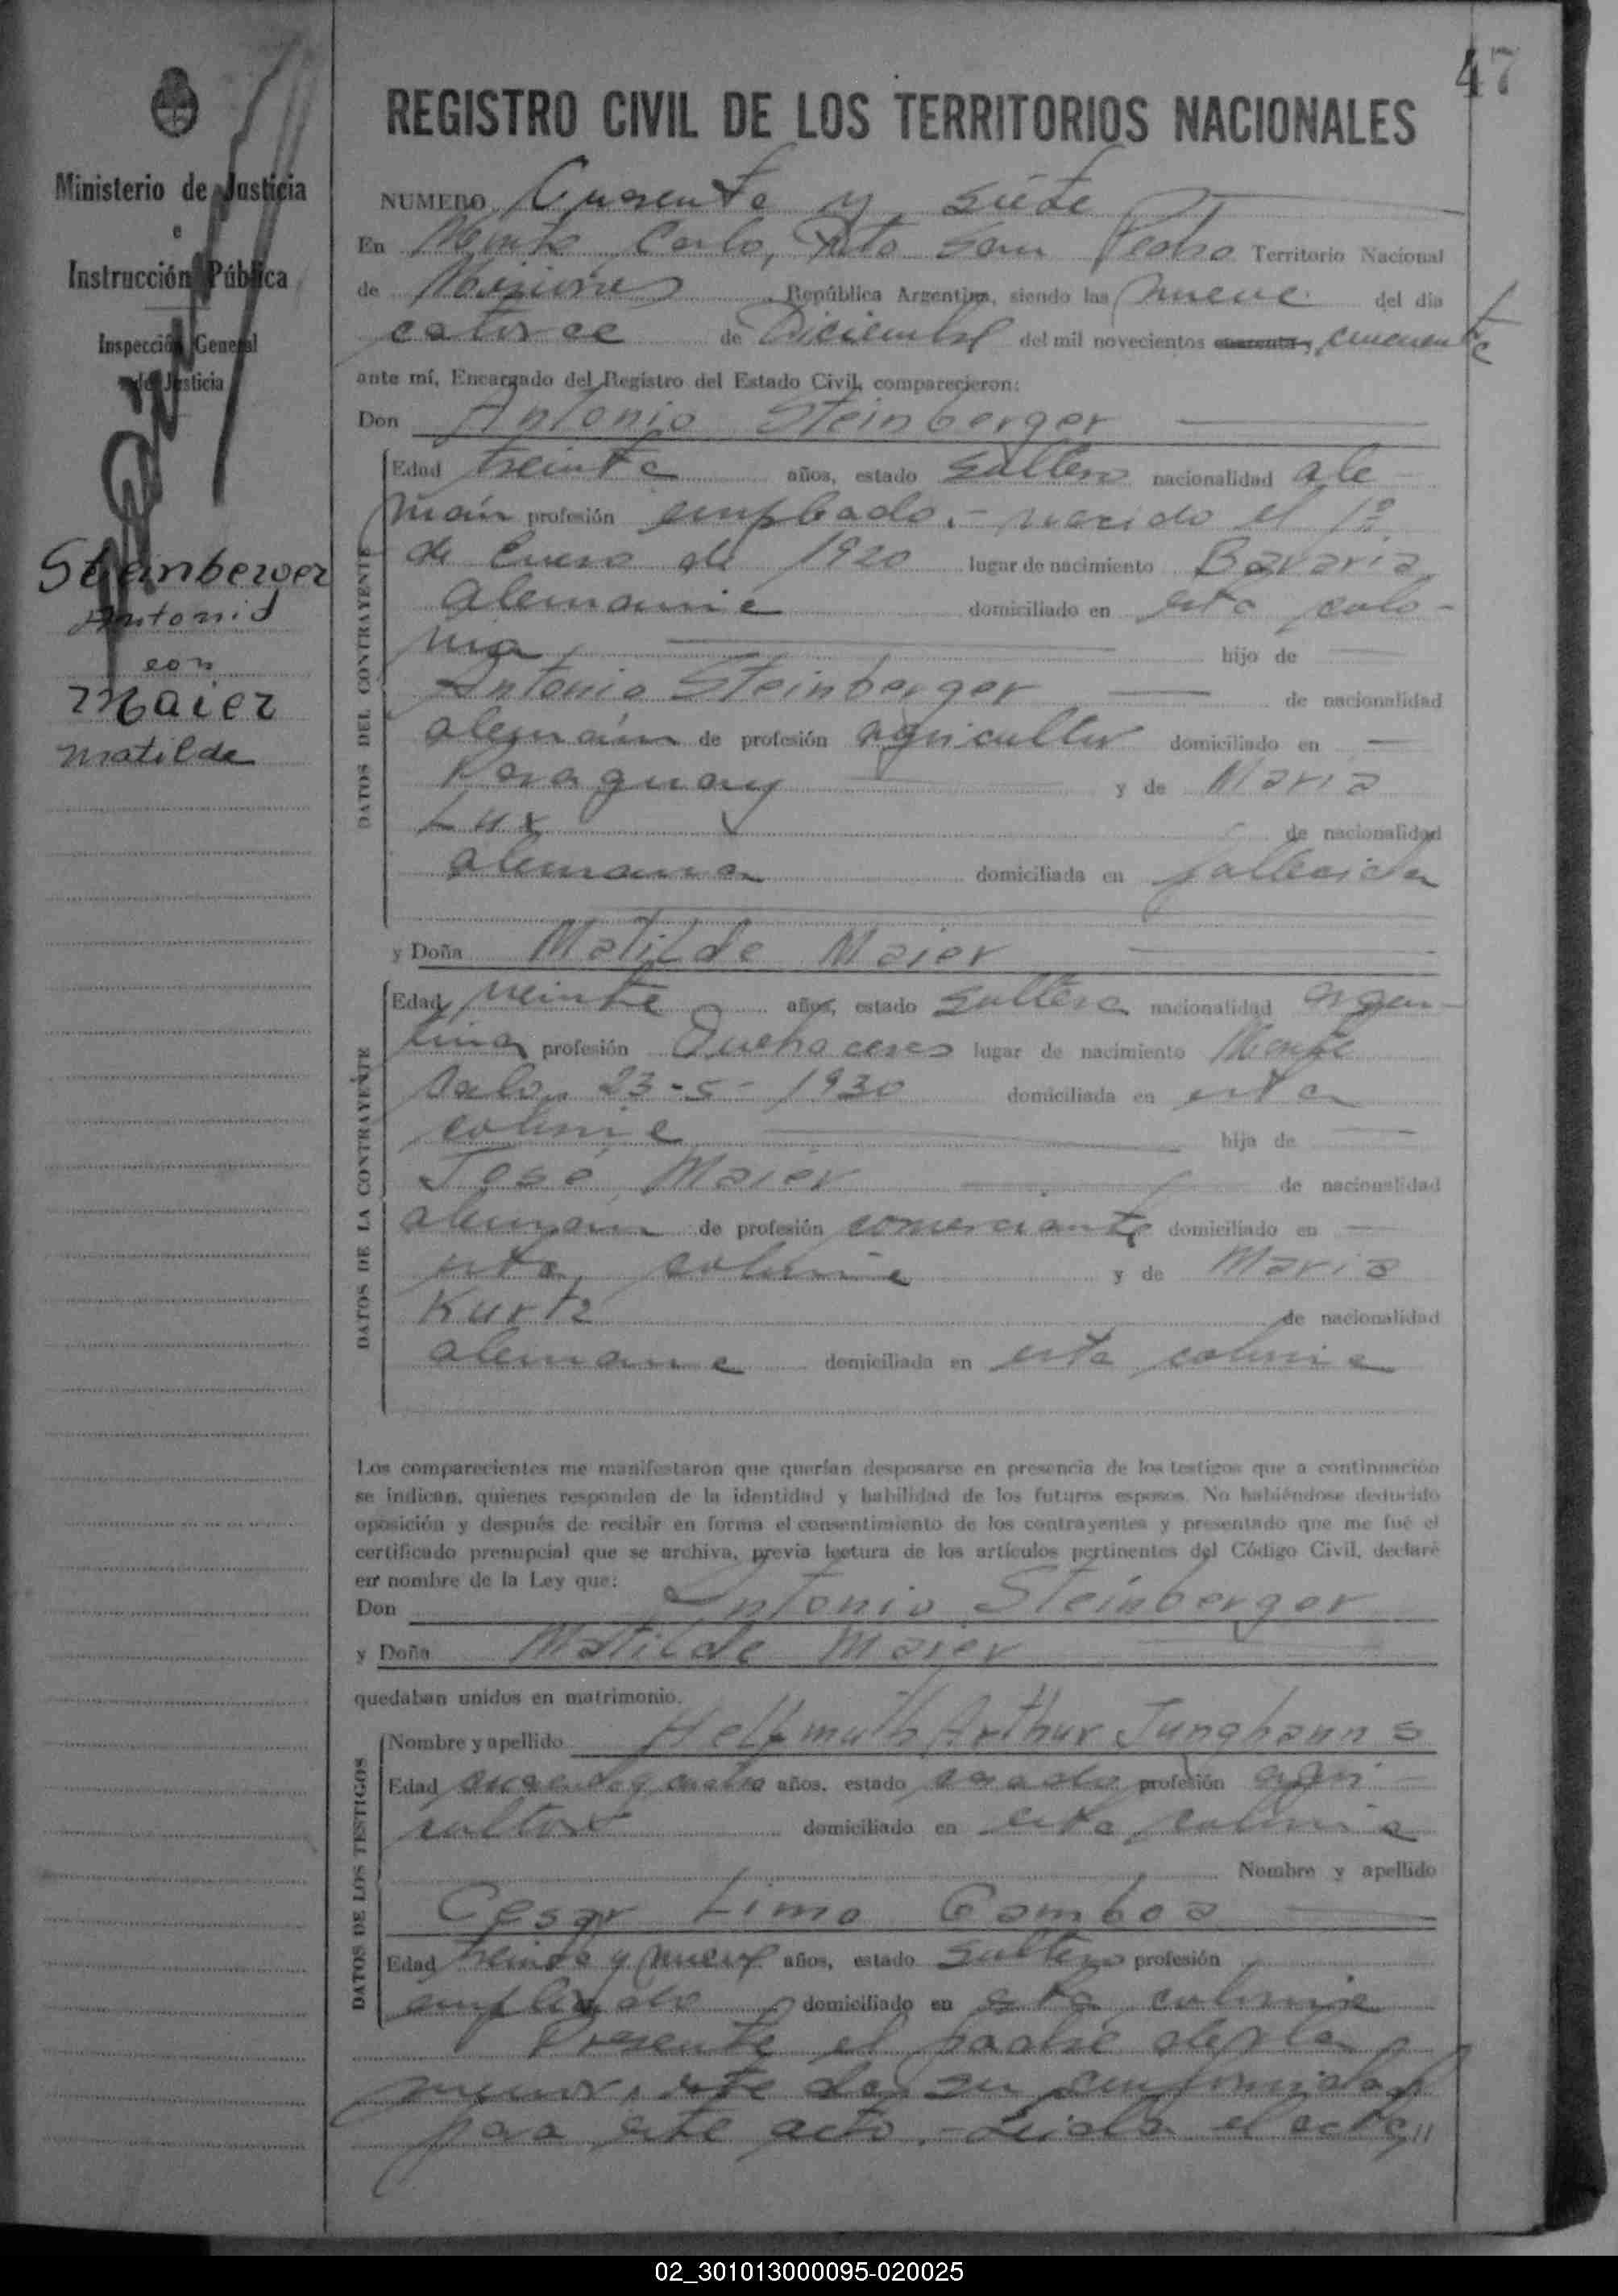 47
Ministerio de Justicia
e
Instrucción Pública
Inspección General
de Justicia
Steinberger
Antonio
con
Maier
Matilde
REGISTRO CIVIL DE LOS TERRITORIOS NACIONALES
NUMERO Cuarenta y siete
En Monte Carlo, Dto San Pedro Territorio Nacional
de Misiones República Argentina, siendo las nueve del día
catorce de Diciembre del mil novecientos cuarenta y cincuenta
ante mí, Encargado del Registro del Estado Civil, comparecieron:
Don Antonio Steinberger
DATOS DEL CONTRAYENTE
Edad treinta años, estado soltero nacionalidad ale-
mán profesión empleado.- nacido el 1º
de Enero de 1920 lugar de nacimiento Bavaria,
Alemania domiciliado en esta colo-
nia hijo de
Antonio Steinberger de nacionalidad
alemán de profesión agricultor domiciliado en
Paraguay y de Maria
Lux de nacionalidad
alemana domiciliada en fallecida
y Doña Matilde Maier
DATOS DE LA CONTRAYENTE
Edad veinte años, estado soltera nacionalidad argen-
tina profesión Quehaceres lugar de nacimiento Monte
Carlo, 23-5-1930 domiciliada en esta
colonia hija de
José Maier de nacionalidad
alemán de profesión comerciante domiciliado en
esta colonia y de Maria
Kurtz de nacionalidad
alemana domiciliada en esta colonia
Los comparecientes me manifestaron que querían desposarse en presencia de los testigos que a continuación
se indican, quienes responden de la identidad y habilidad de los futuros esposos. No habiéndose deducido
oposición y después de recibir en forma el consentimiento de los contrayentes y presentado que me fué el
certificado prenupcial que se archiva, previa lectura de los artículos pertinentes del Código Civil, declaré
en nombre de la Ley que:
Don Antonio Steinberger
y Doña Matilde Maier
quedaban unidos en matrimonio.
DATOS DE LOS TESTIGOS
Nombre y apellido Hellmuth Arthur Junghanns
Edad cuarenta y cuatro años, estado casado profesión agri-
cultor domiciliado en esta colonia
Nombre y apellido
Cesar Limo Gamboa
Edad treinta y nueve años, estado soltero profesión
empleado domiciliado en esta colonia
Presente el padre de la
menor, este da su conformidad
para este acto.- Leida el acta,,
02_301013000095-020025